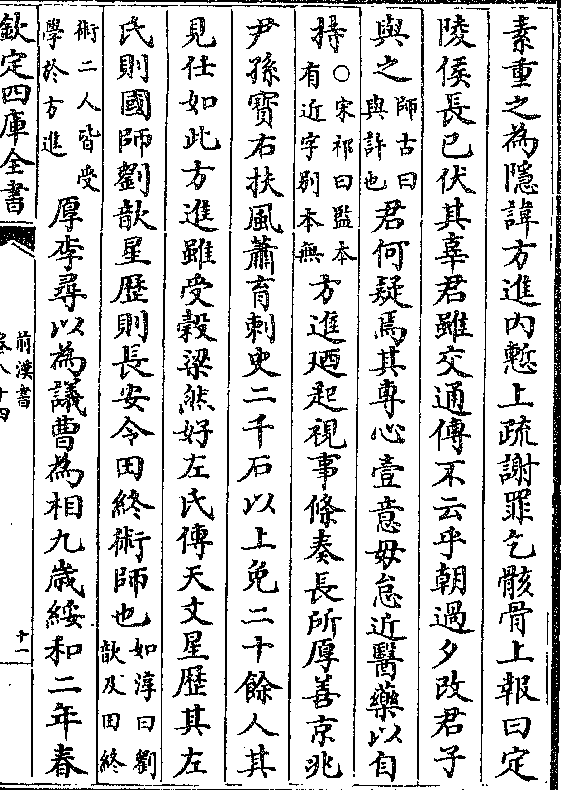 素重之為隱諱方進内慙上疏謝罪乞骸骨上報曰定
陵侯長已伏其辜君雖交通傳不云乎朝過夕改君子
與之師古曰與許也君何疑焉其專心壹意毋怠近醫藥以自
持○宋祁曰監本有近字别本無方進廼起視事條奏長所厚善京兆
尹孫寶右扶風蕭育刺史二千石以上免二十餘人其
見任如此方進雖受穀梁然好左氏傳天文星歴其左
氏則國師劉歆星歴則長安令田終術師也如淳曰劉歆及田終
術二人皆受學於方進厚李尋以為議曹為相九歳綏和二年春
欽定四庫全書
前漢書
卷八十四
十一